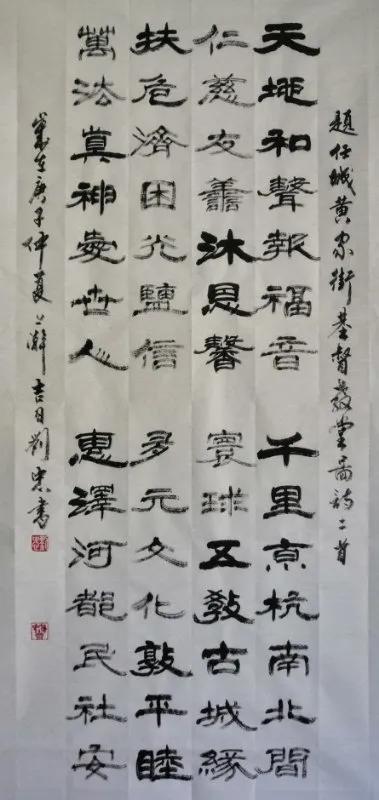 題任城黄家街基督教堂需詩二首
天地和聲報福音 千里京杭南北間
仁慈友善沐恩馨 寰球五教古城緣
扶危濟困光鹽信 多元文化敦平睦
萬法真神愛世人 惠澤河都民社安
歲在庚子仲夏上澣吉日劉忠書